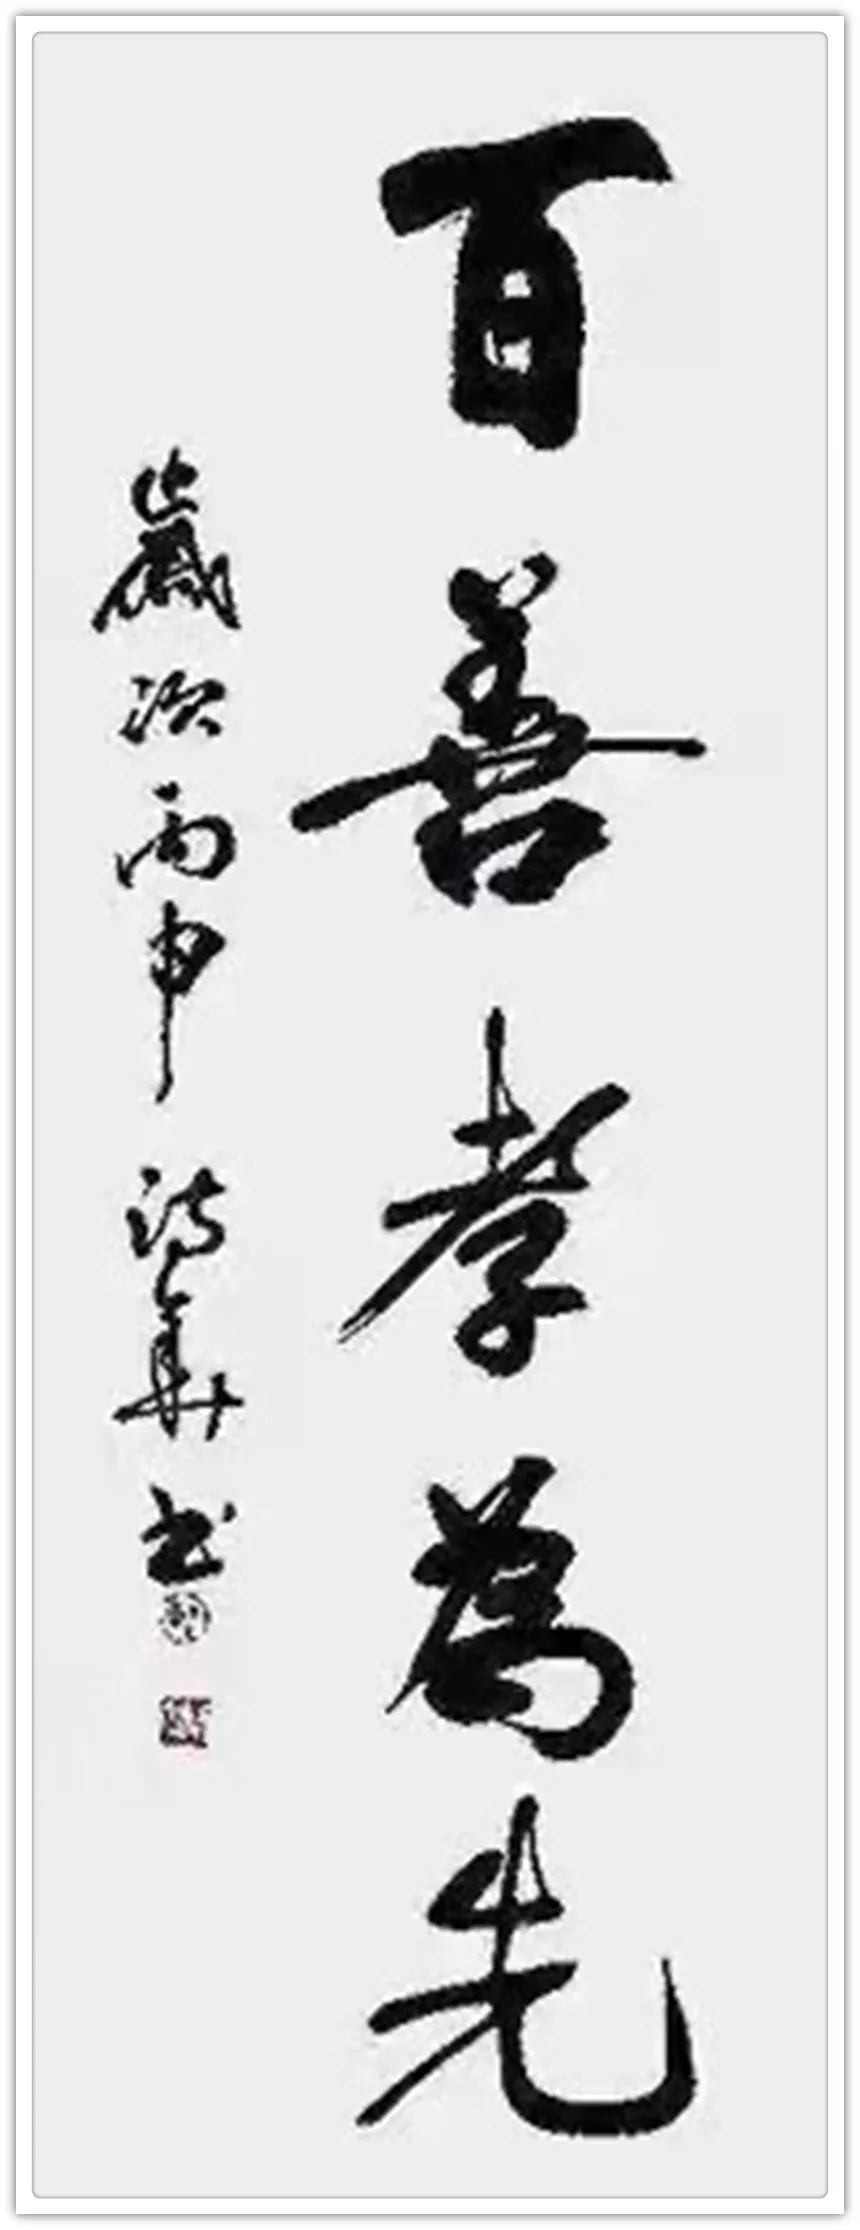 百善孝為先
歲次丙申詩華書